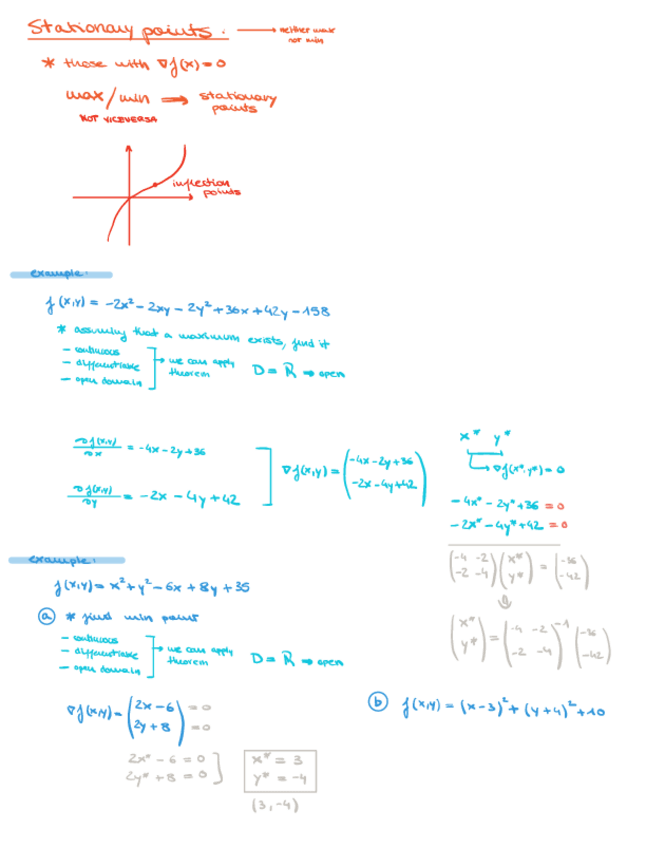 Stationary points. → neither max
not min
* those with ∇f(x)=0
max/min ⟹ stationary
points
NOT VICEVERSA
inflection
points
example:
f(x,y) = -2x² - 2xy - 2y² + 36x + 42y - 158
* assuming that a maximum exists, find it
- continuous
- differentiable
- open domain
→ we can apply
theorem
D = ℝ → open
∂f(x,y)/∂x = -4x - 2y + 36
∂f(x,y)/∂y = -2x - 4y + 42
∇f(x,y) = (-4x - 2y + 36
-2x - 4y + 42)
x* y*
→ ∇f(x*,y*) = 0
-4x* - 2y* + 36 = 0
-2x* - 4y* + 42 = 0
(-4 -2
-2 -4) (x*
y*) = (-36
-42)
⇓
(x*
y*) = (-4 -2
-2 -4)⁻¹ (-36
-42)
example:
f(x,y) = x² + y² - 6x + 8y + 35
ⓐ * find min point
- continuous
- differentiable
- open domain
→ we can apply
theorem
D = ℝ → open
∇f(x,y) = (2x - 6
2y + 8) = 0
= 0
2x* - 6 = 0
2y* + 8 = 0
x* = 3
y* = -4
(3, -4)
ⓑ f(x,y) = (x-3)² + (y+4)² + 10